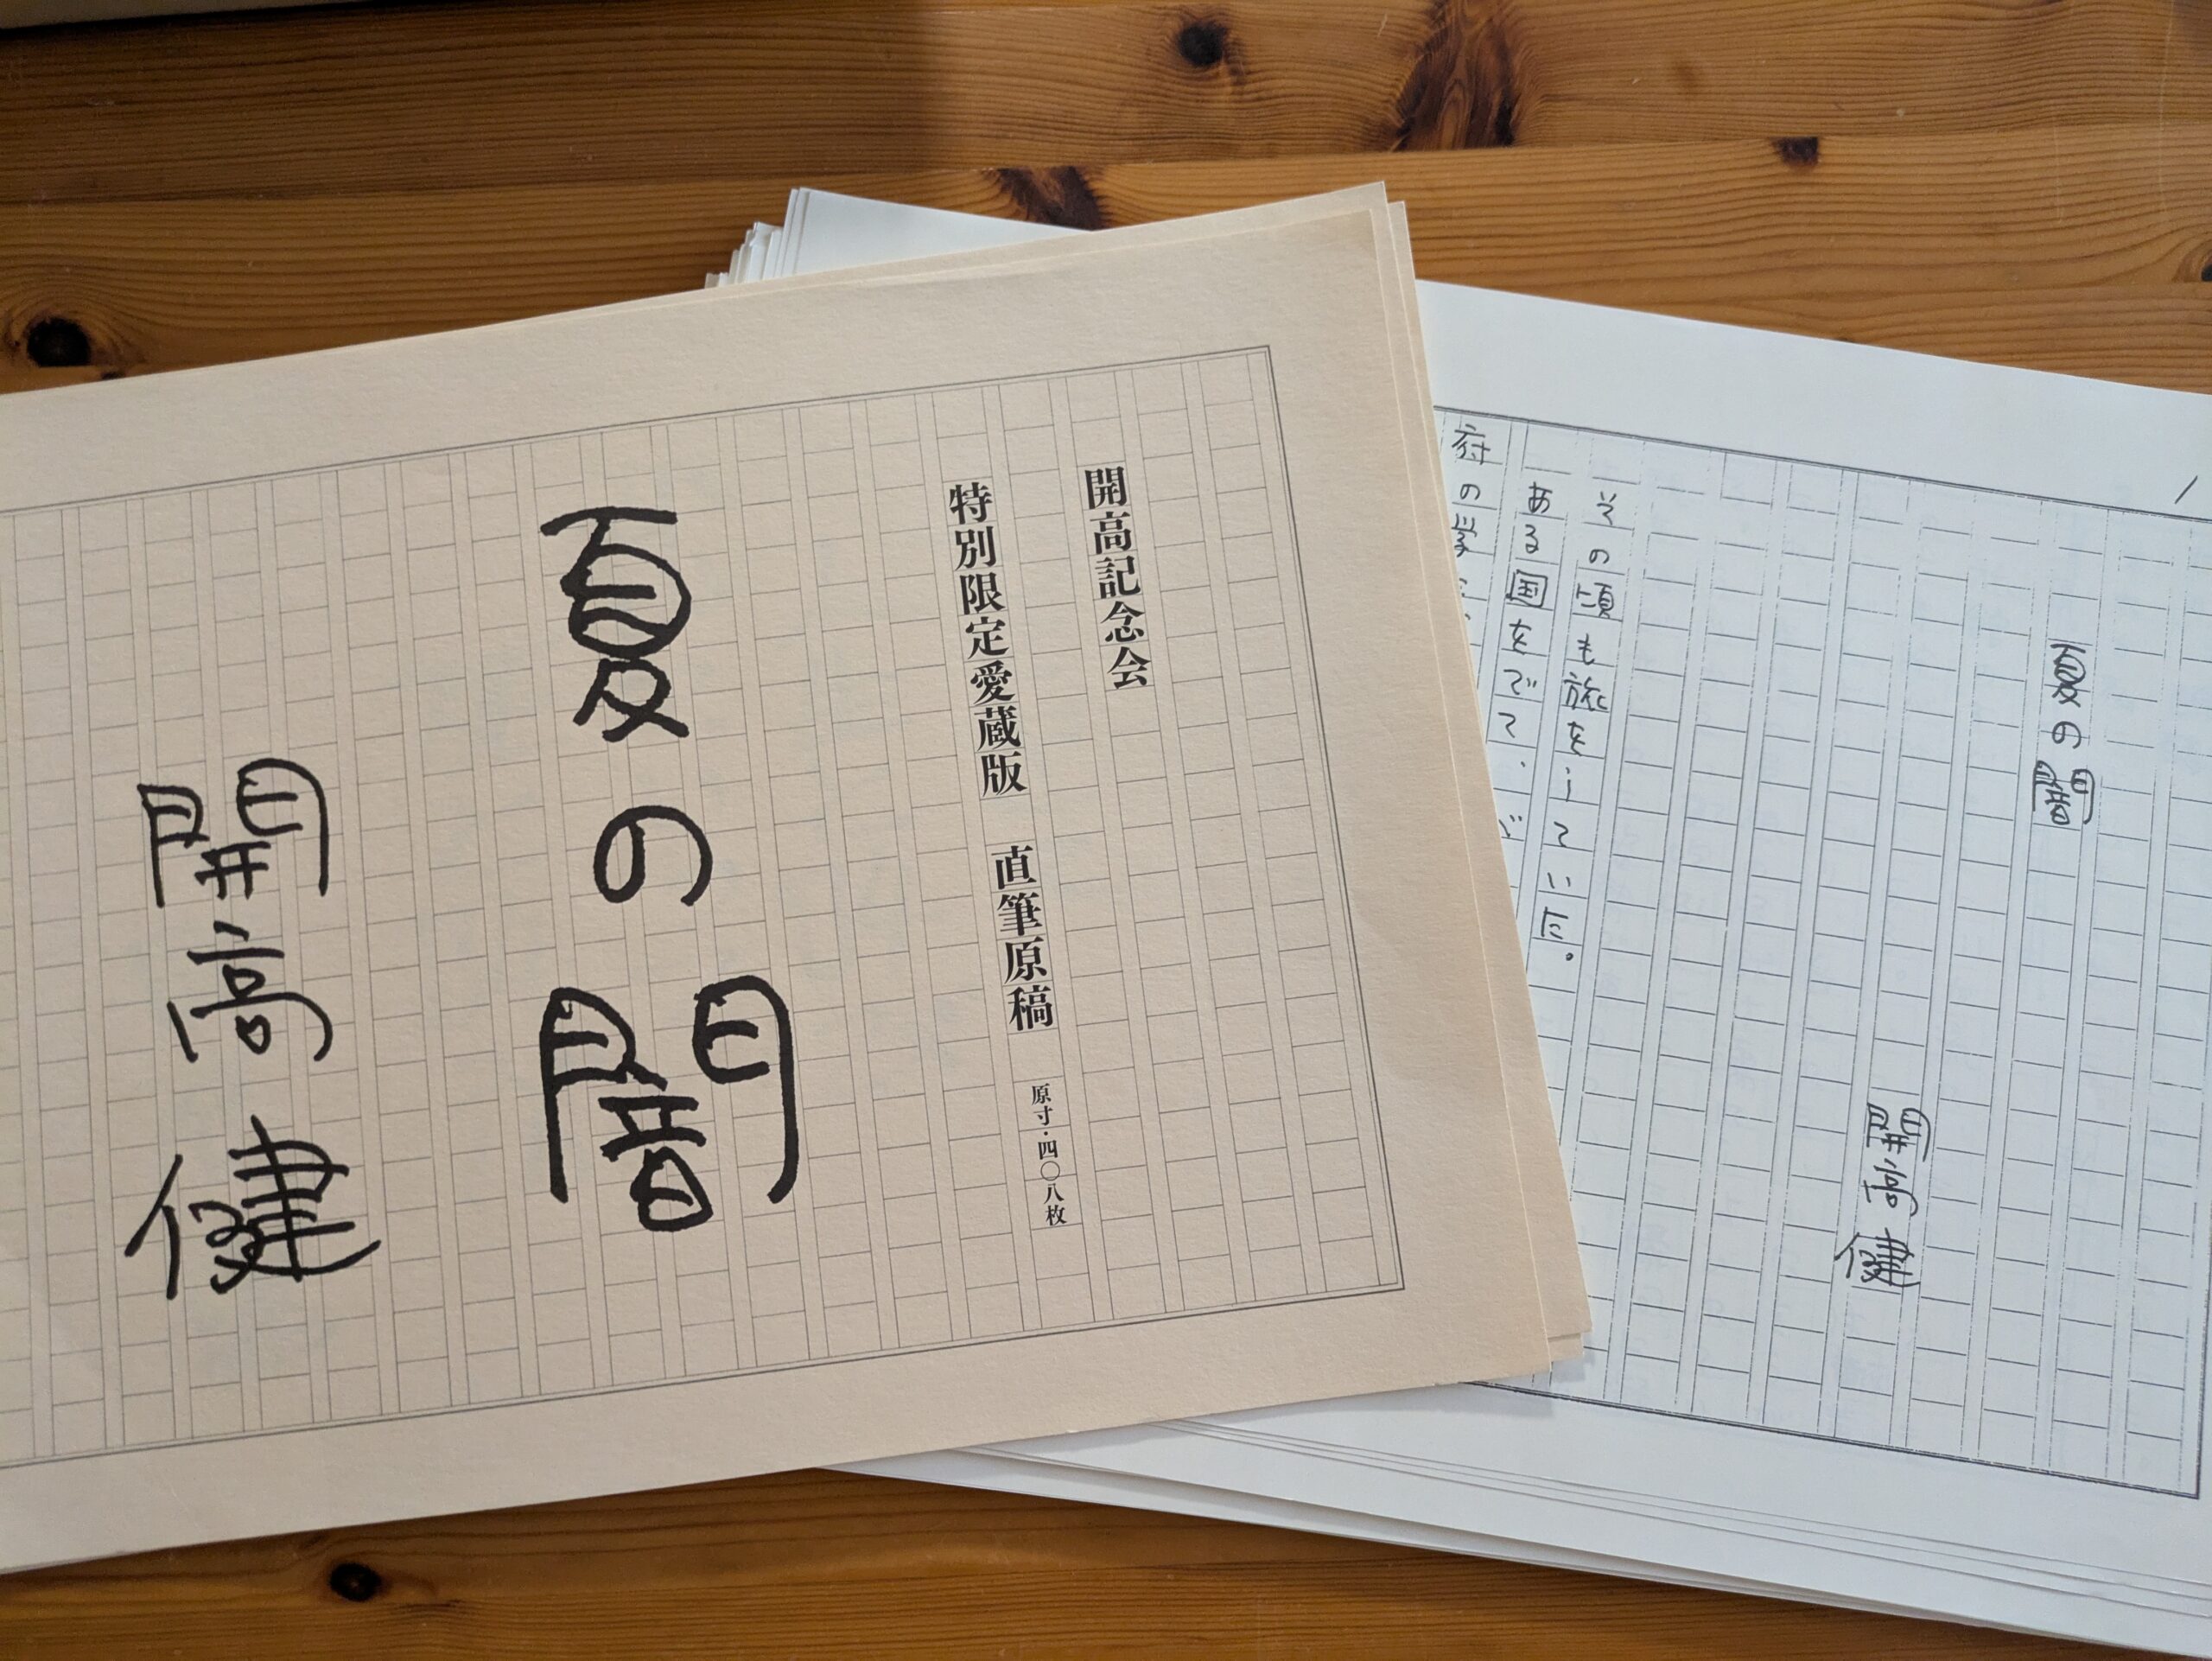 開高記念会
特別限定愛蔵版 直筆原稿 原寸・四〇八枚
夏の闇
開高健
1
夏の闇
開高健
その頃も旅をしていた。
ある国をでて、
府の学